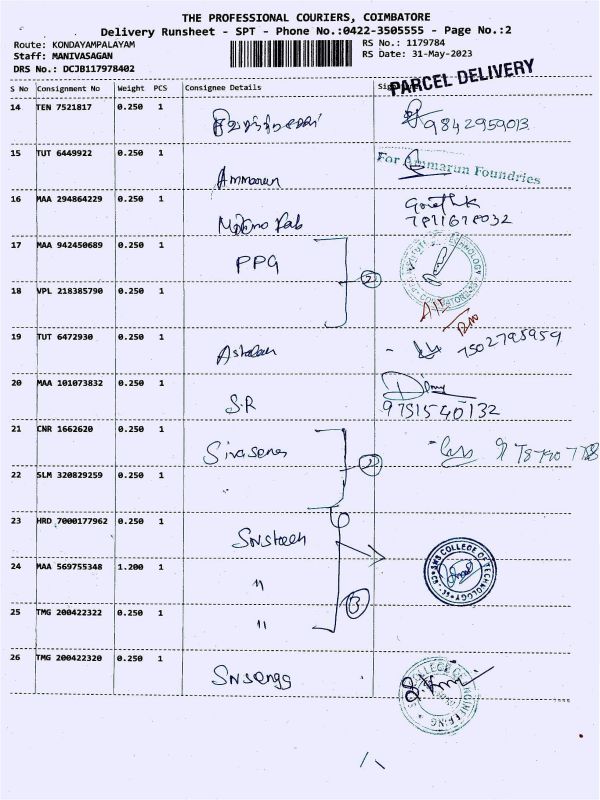 THE PROFESSIONAL COURIERS, COIMBATORE
Delivery Runsheet - SPT - Phone No.:0422-3505555 - Page No.:2
Route: KONDAYAMPALAYAM
RS No.: 1179784
Staff: MANIVASAGAN
RS Date: 31-May-2023
DRS No.: DCJB117978402
PARCEL DELIVERY
S No Consignment No Weight PCS Consignee Details
14 TEN 7521817 0.250 1 9842959013
15 TUT 6449922 0.250 1 Ammarun For Ammarun Foundries
16 MAA 294864229 0.250 1
17 MAA 942450689 0.250 1 PPG
2
18 VPL 218385790 0.250 1
19 TUT 6472930 0.250 1 7502795959
20 MAA 101073832 0.250 1 SR 9751540132
21 CNR 1662620 0.250 1
2
22 SLM 320829259 0.250 1
23 HRD 7000177962 0.250 1 Snstech
24 MAA 569755348 1.200 1 "
SNS COLLEGE OF TECHNOLOGY
25 TMG 200422322 0.250 1 "
3
26 TMG 200422320 0.250 1 Snsengg
COLLEGE OF ENGINEERING